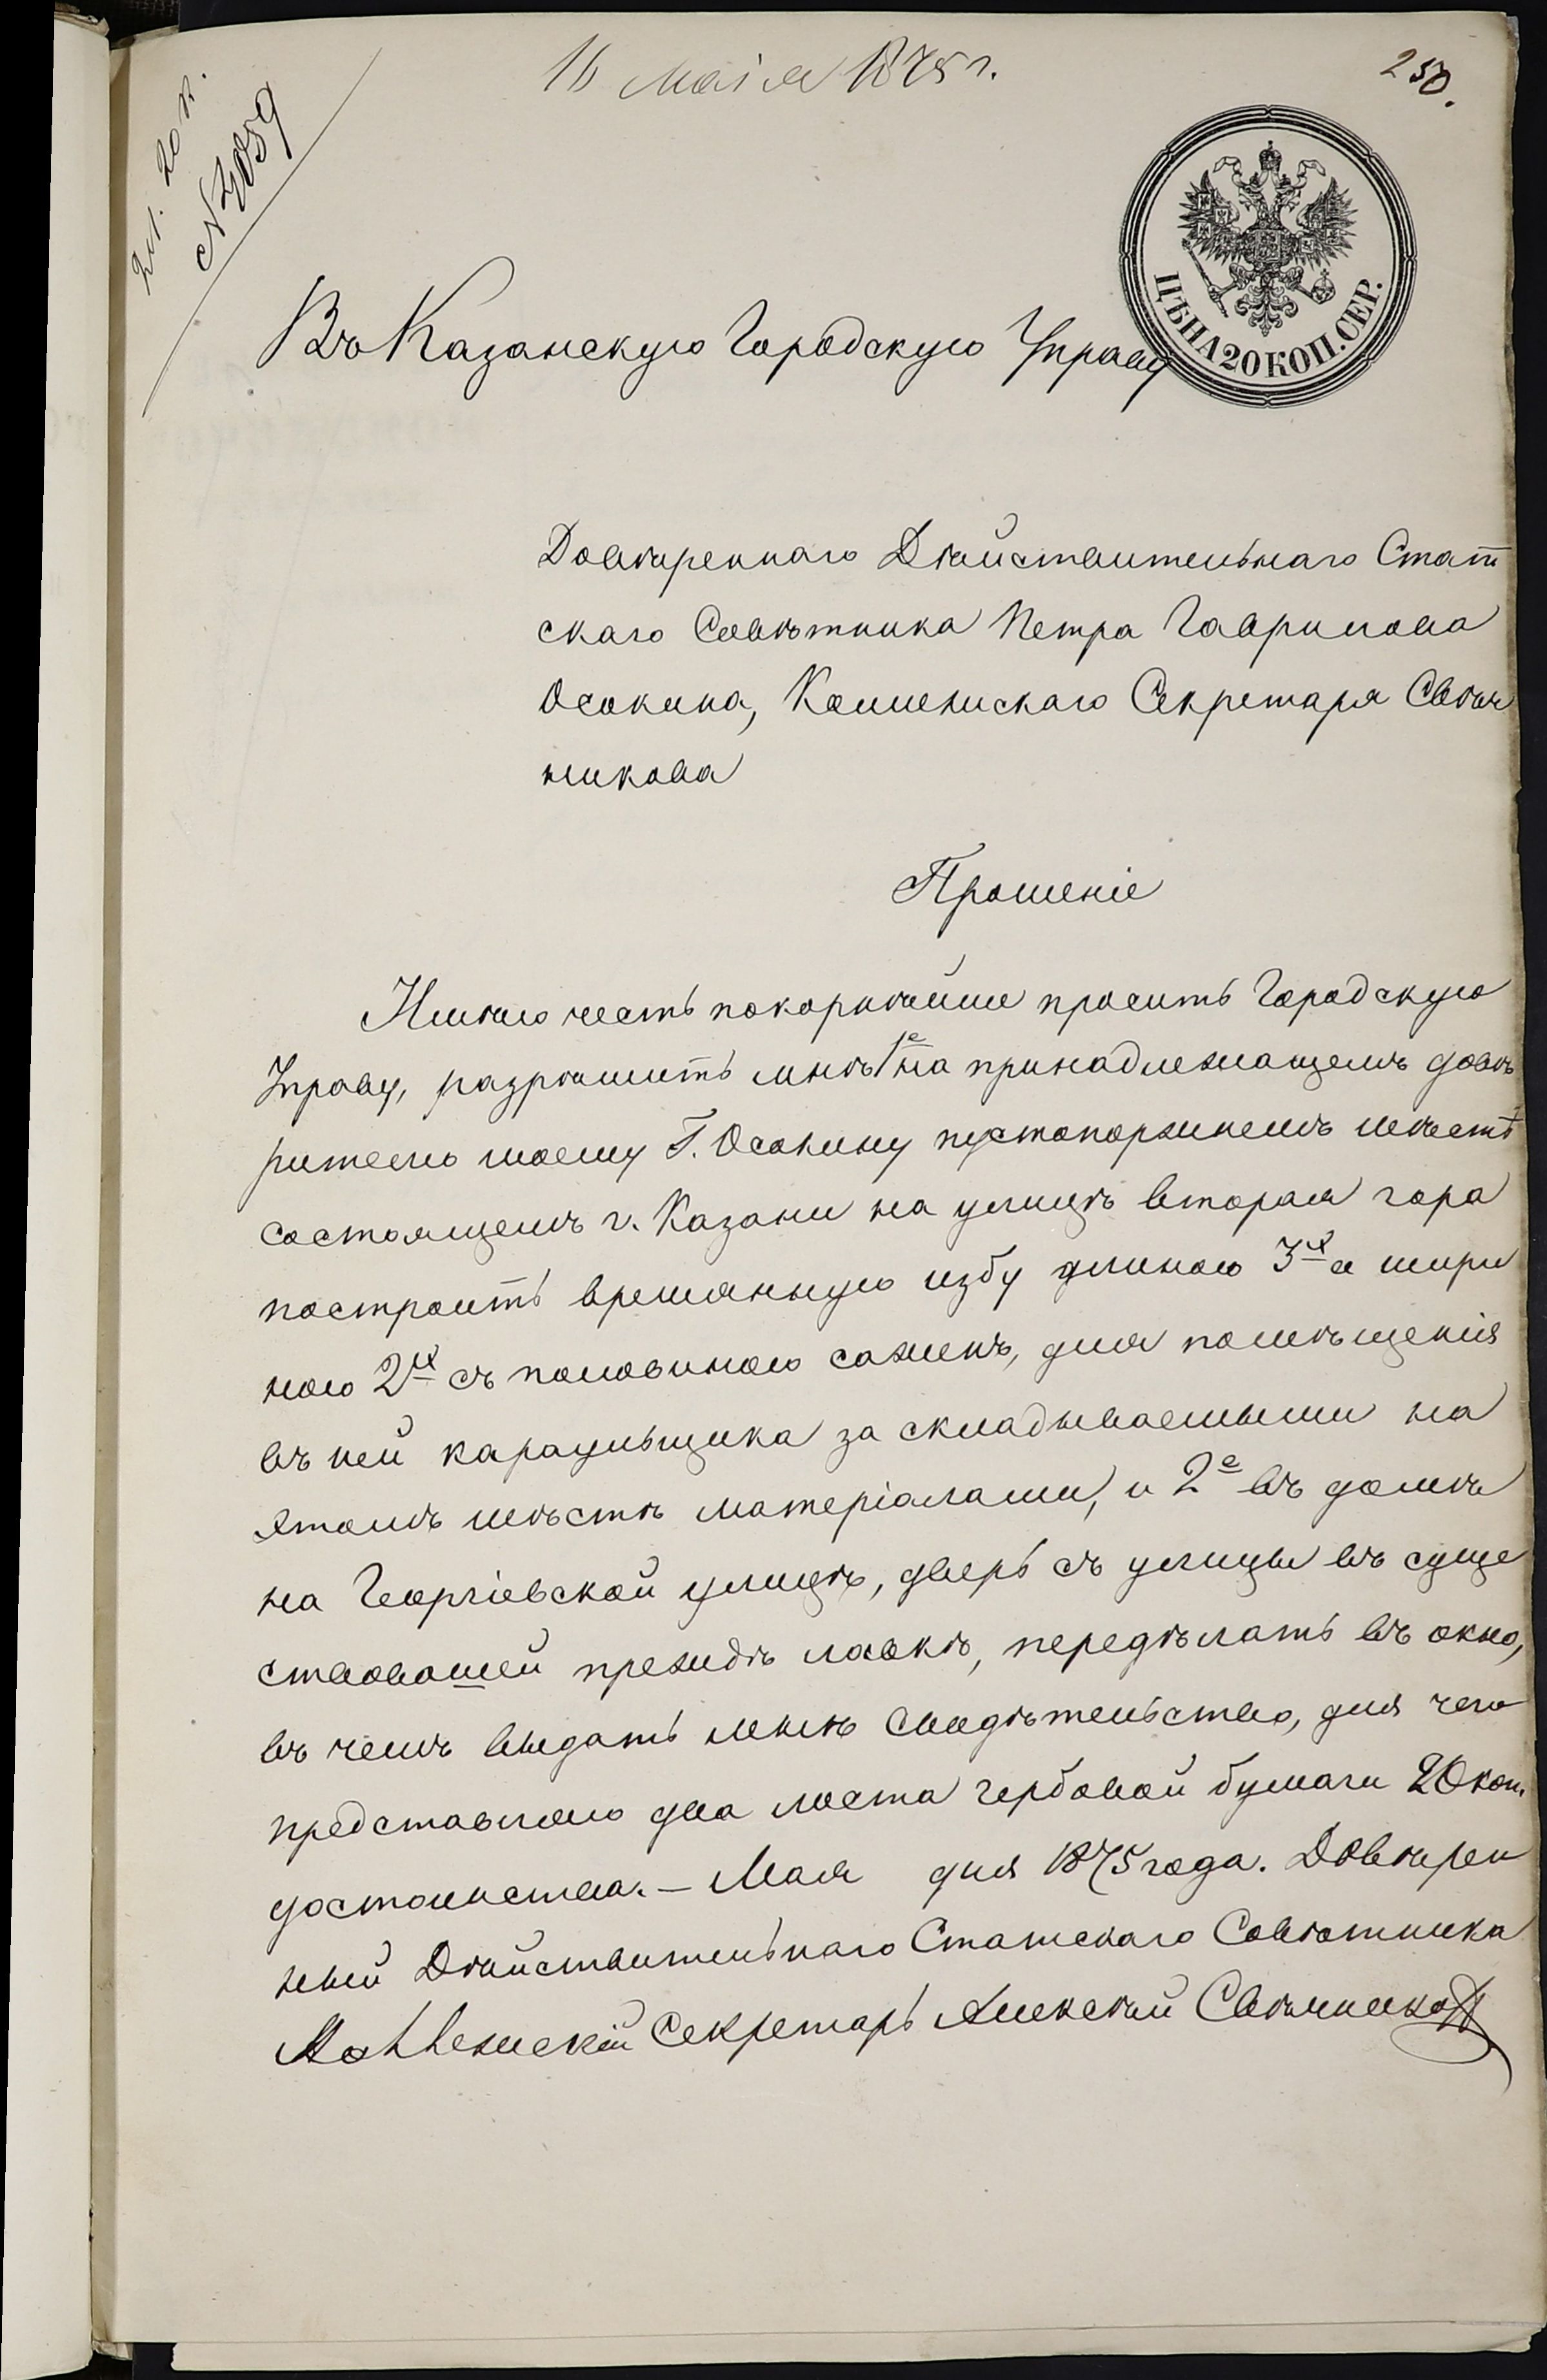 16 Маія 1875 г.
250.
2 л. 20 к.
№ 2059
ЦѢНА 20 КОП. СЕР.
Въ Казанскую Городскую Управу
Довѣреннаго Дѣйствительнаго Стат
скаго Совѣтника Петра Гаврилова
Осокина, Коллежскаго Секретаря Свѣч
никова
Прошеніе
Имѣю честь покорнѣйше просить Городскую
Управу, разрѣшить мнѣ 1е на принадлежащемъ довѣ
рителю моему Г. Осокину пустопоржнемъ мѣстѣ
состоящемъ г. Казани на улицѣ вторая гора
построить временную избу длиною 3х а шири
ною 2х съ половиною сажень, для помѣщенія
въ ней караульщика за складываемыми на
этомъ мѣстѣ матеріалами, и 2е въ домѣ
на Георгіевской улицѣ, дверь съ улицы въ суще
ствовавшей прежде лавкѣ, передѣлать въ окно,
въ чемъ выдать мнѣ свидѣтельство, для чего
представляю два листа гербовой бумаги 20 коп.
достоинства. — Мая дня 1875 года. Довѣрен
ный Дѣйствительнаго Статскаго Совѣтника
Коллежскій Секретарь Алексѣй Свѣчниковъ